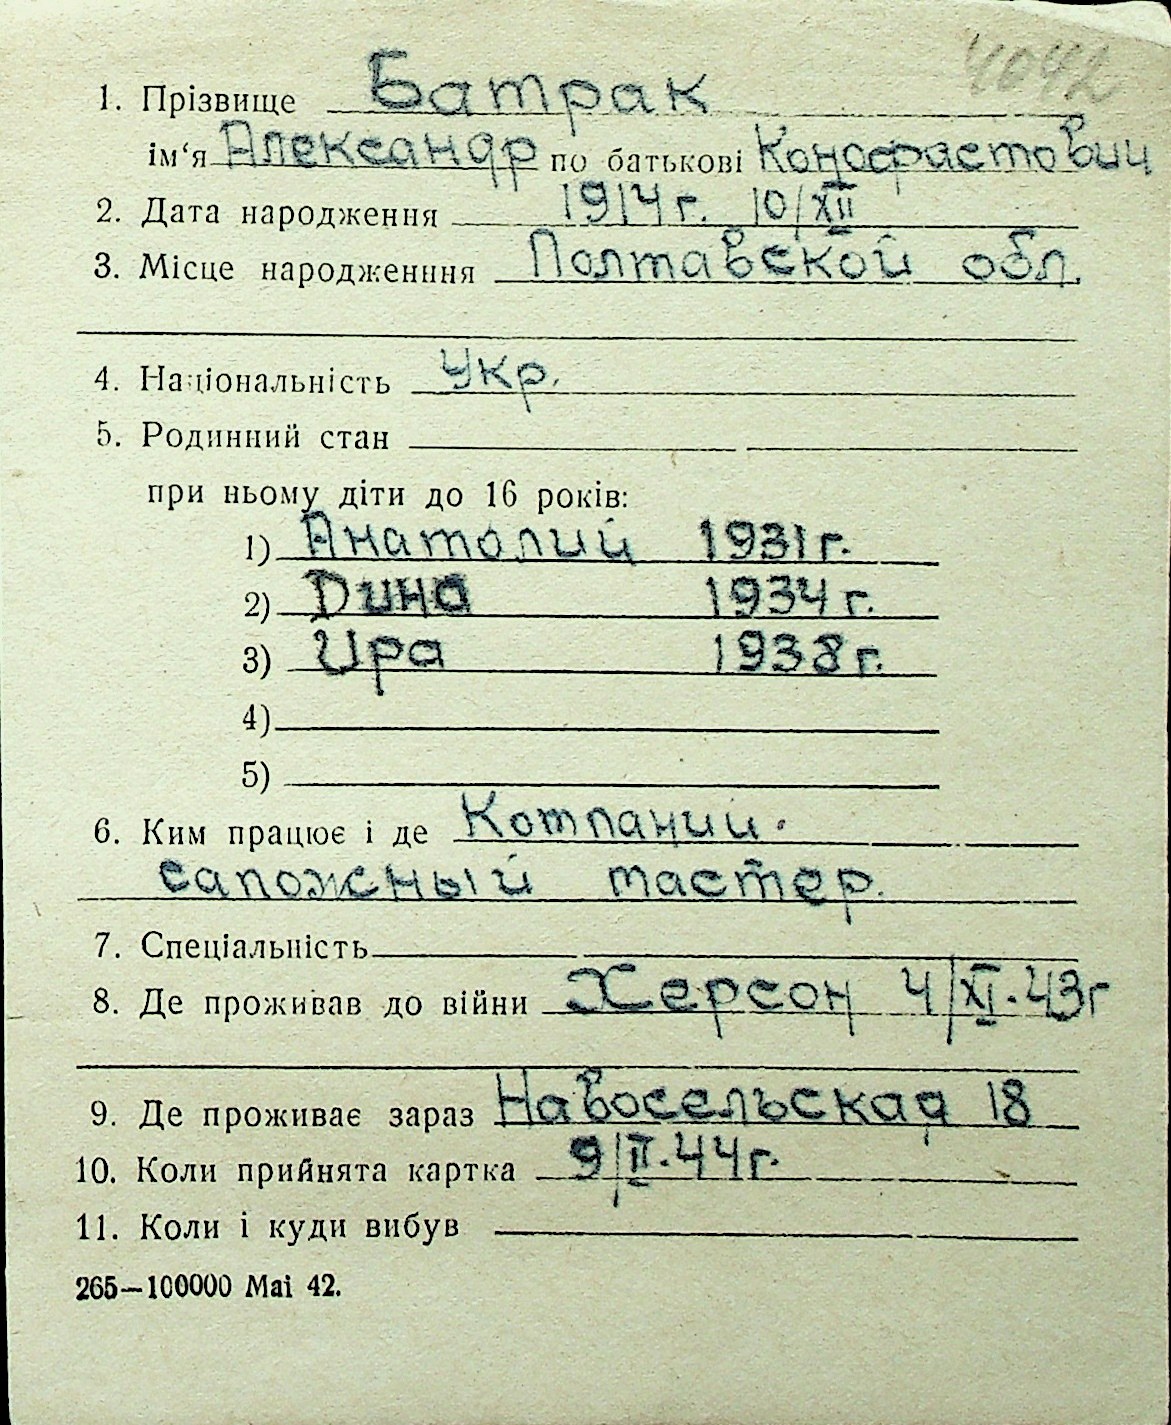 4042
1. Прізвище Батрак
ім‘я Александр по батькові
2. Дата народження 1914 г. 10/XII
3. Місце народженння Полтавской обл.
4. Національність Укр.
5. Родинний стан
при ньому діти до 16 років:
1) Анатолий 1931 г.
2) Дина 1934 г.
3) Ира 1938 г.
4)
5)
6. Ким працює і де Компании.
сапожный мастер.
7. Спеціальність
8. Де проживав до війни Херсон 4/XI.43г
9. Де проживає зараз Навосельская 18
10. Коли прийнята картка 9/II.44г.
11. Коли і куди вибув
265—100000 Mai 42.